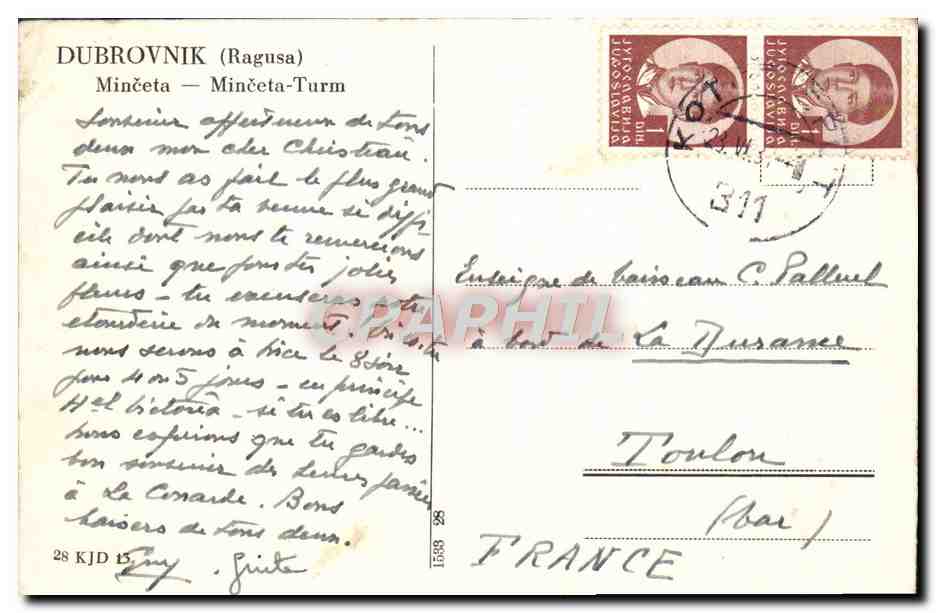 DUBROVNIK (Ragusa)
Minčeta — Minčeta-Turm
Souvenir affectueux de tous
deux mon cher Christian.
Tu nous as fait le plus grand
plaisir par ta venue si diffi
cile dont nous te remercions
ainsi que pour tes jolies
fleurs - tu excuseras notre
etourderie du moment.
nous serons à Nice le 8 soir
pour 4 ou 5 jours - en principe
Hel Victoria - si tu es libre...
nous espérons que tu gardes
bon souvenir des heures passées
à La
Bons
baisers de tous deux.
Guy . Ginette
28 KJD 13.
1533 28
ЈУГОСЛАВИЈА
JUGOSLAVIJA
1 DIN.
ЈУГОСЛАВИЈА
JUGOSLAVIJA
KOT
23.VI.3
311
Enseigne de vaisseau C. Palluel
à bord de La Durance
Toulon
(Var)
FRANCE
CPAPHIL